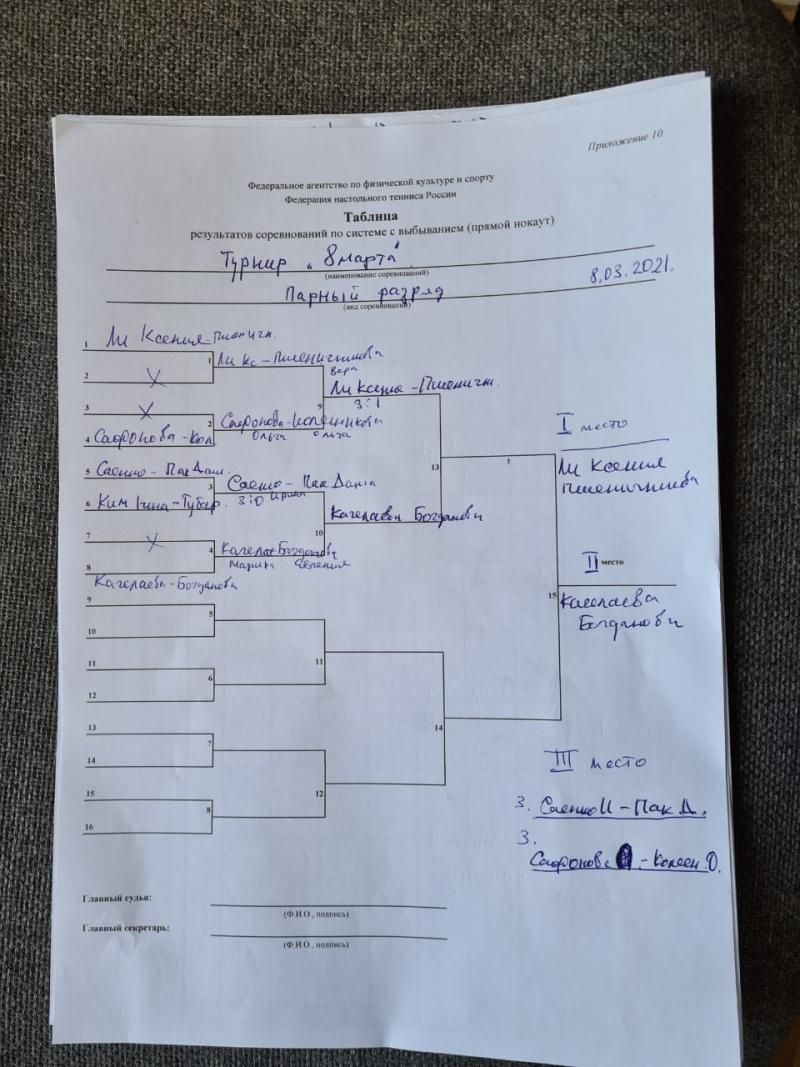 Приложение 10
Федеральное агентство по физической культуре и спорту
Федерация настольного тенниса России
Таблица
результатов соревнований по системе с выбыванием (прямой нокаут)
Турнир „8 марта"
(наименование соревнований)
8.03.2021.
Парный разряд
(вид соревнования)
1 Ли Ксения-Пшеничн.
1 Ли Кс-Пшеничникова
Вера
2 X
9 Ли Ксения-Пшеничн.
3:1
3 X
2 Сафронова-
Ольга Ольга
4 Сафронова-Кол
I место
13
1
Ли Ксения
Пшеничникова
5 Саенко-Пак Даш.
3 Саенко-Пак Дарья
3:0 Ирина
6 Ким
10 Кагелаева Богданови
7 X
4 Кагела-Богданова
Марина Евгения
8
Кагелаева-Богданова
II место
15 Кагелаева
Богданови
9
5
10
11
11
6
12
13
14
7
14
III место
15
12
8
16
3. Саенко И-Пак Д.
3.
Сафронова - О.
Главный судья:
(Ф.И.О., подпись)
Главный секретарь:
(Ф.И.О., подпись)